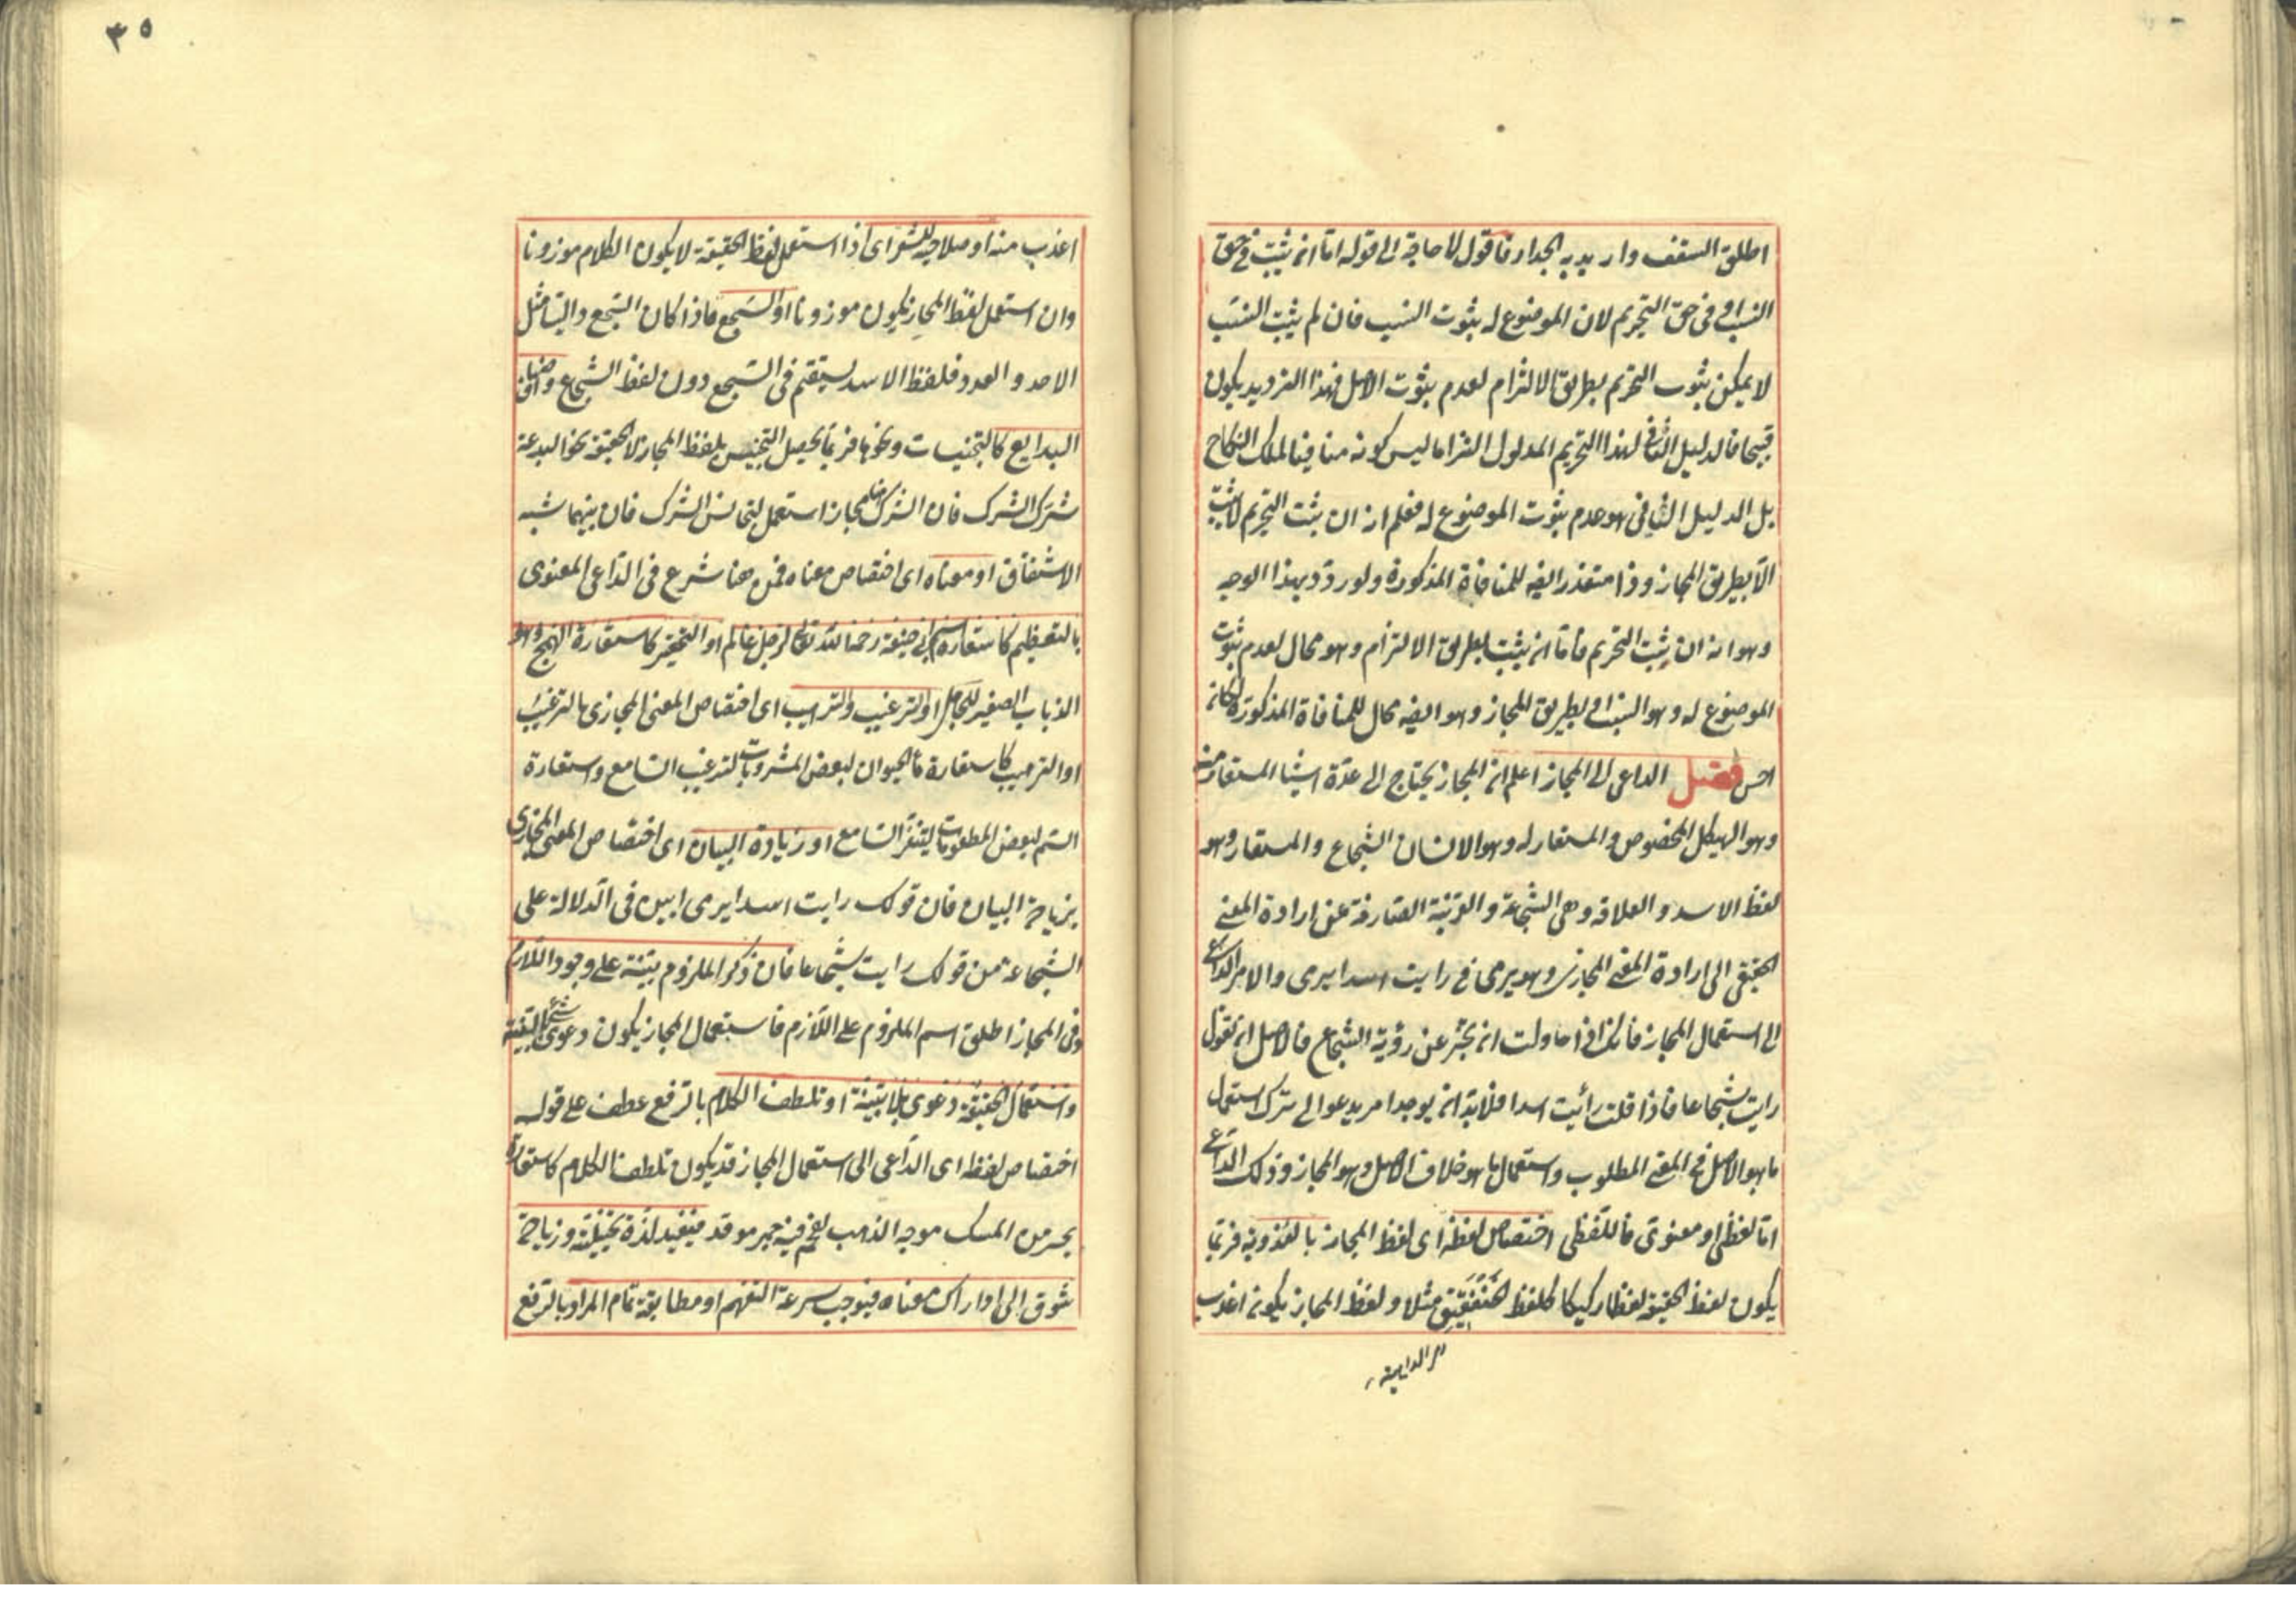 اطلق السقف واريد به الجدار فاقول لا حاجة الى قوله اما ان يثبت في حق
النسب او في حق التحريم لان الموضوع له ثبوت النسب فان لم يثبت النسب
لا يمكن ثبوت التحريم بطريق الالتزام لعدم ثبوت الاصل فهذا الترديد يكون
قبيحا فالدليل النافي لهذا التحريم المدلول التزاما ليس كونه منافيا لملك النكاح
بل الدليل النافي هو عدم ثبوت الموضوع له فعلم انه ان ثبت التحريم لا يثبت
الا بطريق المجاز وذا متعذر ايضه للمنافاة المذكورة ولو ردد بهذا الوجه
وهو انه ان يثبت التحريم فاما ان يثبت بطريق الالتزام وهو محال لعدم ثبوت
الموضوع له وهو النسب او بطريق المجاز وهو ايضه محال للمنافاة المذكورة لكان
احسن فصل الداعي الى المجاز اعلم ان المجاز يحتاج الى عدة اشيا المستعار منه
وهو الهيكل المخصوص والمستعار له وهو الانسان الشجاع والمستعار وهو
لفظ الاسد والعلاقه وهي الشجاعة والقرينة الصارفة عن ارادة المعنى
الحقيقي الى ارادة المعنى المجازي وهو يرمى في رايت اسدا يرمى والامر الداعي
الى استعمال المجاز فانك اذا حاولت ان تخبر عن رؤية الشجاع فالاصل ان تقول
رايت شجاعا فاذا قلت رأيت اسدا فلا بد ان يوجد امر يدعو الى ترك استعمال
ما هو الاصل في المعنى المطلوب واستعمال ما هو خلاف الاصل وهو المجاز وذلك الداعي
اما لفظي او معنوي فاللفظي اختصاص لفظه اى لفظ المجاز بالعذوبة فربما
يكون لفظ الحقيقة لفظا ركيكا كلفظ الخنفقيق مثلا ولفظ المجاز يكون اعذب
الداهية
٣٥
اعذب منه او صلاحيه للشعر اى اذا استعمل لفظ الحقيقة لا يكون الكلام موزونا
وان استعمل لفظ المجاز يكون موزونا او السجع فاذا كان السجع داليا مثل
الاحد والعدد فلفظ الاسد يستقيم في السجع دون لفظ الشجاع واصناف
البدايع كالتجنيسات ونحوها فربما يحصل التجنيس بلفظ المجاز لا الحقيقة نحو البدعة
شرك الشرك فان الشرك هنا مجاز استعمل ليجانس الشرك فان بينهما شبه
الاشتقاق او معناه اى اختصاص معناه فمن هنا شرع في الداعي المعنوي
بالتعظيم كاستعارة اسم ابي حنيفة رحمه الله تعالى لرجل عالم او التحقير كاستعارة الهمج وهو
الذباب الصغير للجاهل او الترغيب والترهيب اى اختصاص المعنى المجازي بالترغيب
او الترهيب كاستعارة ماء الحيوان لبعض المشروبات لترغيب السامع واستعارة
السم لبعض المطعومات ليتنفر السامع او زيادة البيان اى اختصاص المعنى المجازي
بزيادة البيان فان قولك رايت اسدا يرمى ابين في الدلالة على
الشجاعة من قولك رايت شجاعا فان ذكر الملزوم بينة على وجود اللازم
وفي المجاز اطلق اسم الملزوم على اللازم فاستعمال المجاز يكون دعوى الشئ بالبينة
واستعمال الحقيقة دعوى بلا بينة او تلطف الكلام بالرفع عطف على قوله
اختصاص لفظه اى الداعي الى استعمال المجاز قد يكون تلطف الكلام كاستعارة
بحر من المسك موجه الذهب لفحم فيه جمر موقد فيفيد لذة تخييلية وزيادة
شوق الى ادراك معناه فيوجب سرعة التفهم او مطابقة تمام المراد بالرفع